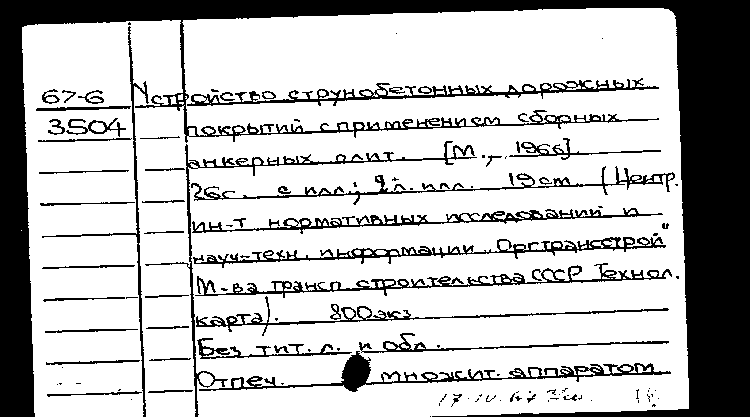 67-6 Устройство струнобетонных дорожных
3504 покрытий с применением сборных
анкерных плит. [М., 1966]
26с. с илл.; 2л. илл. 19 см. (Центр.
ин-т нормативных исследований и
науч-техн. информации „Оргтрансстрой"
М-ва трансп. строительства СССР Технол.
карта). 800 экз
Без тит. л. и обл.
Отпеч. множит. аппаратом